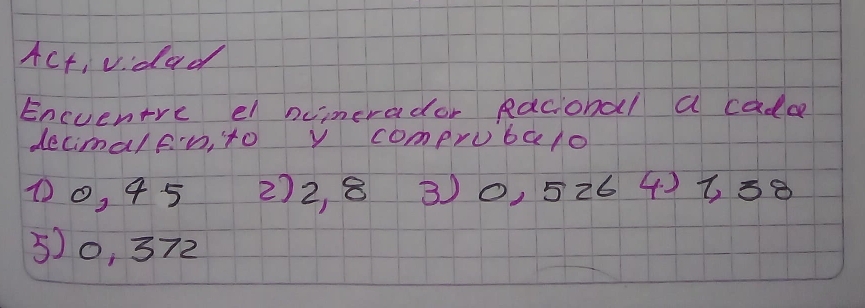 Actividad
Encuentre el numerador Racional a cada
decimal finito y comprubalo
1) 0,45 2) 2,8 3) 0,526 4) 1,38
5) 0,372